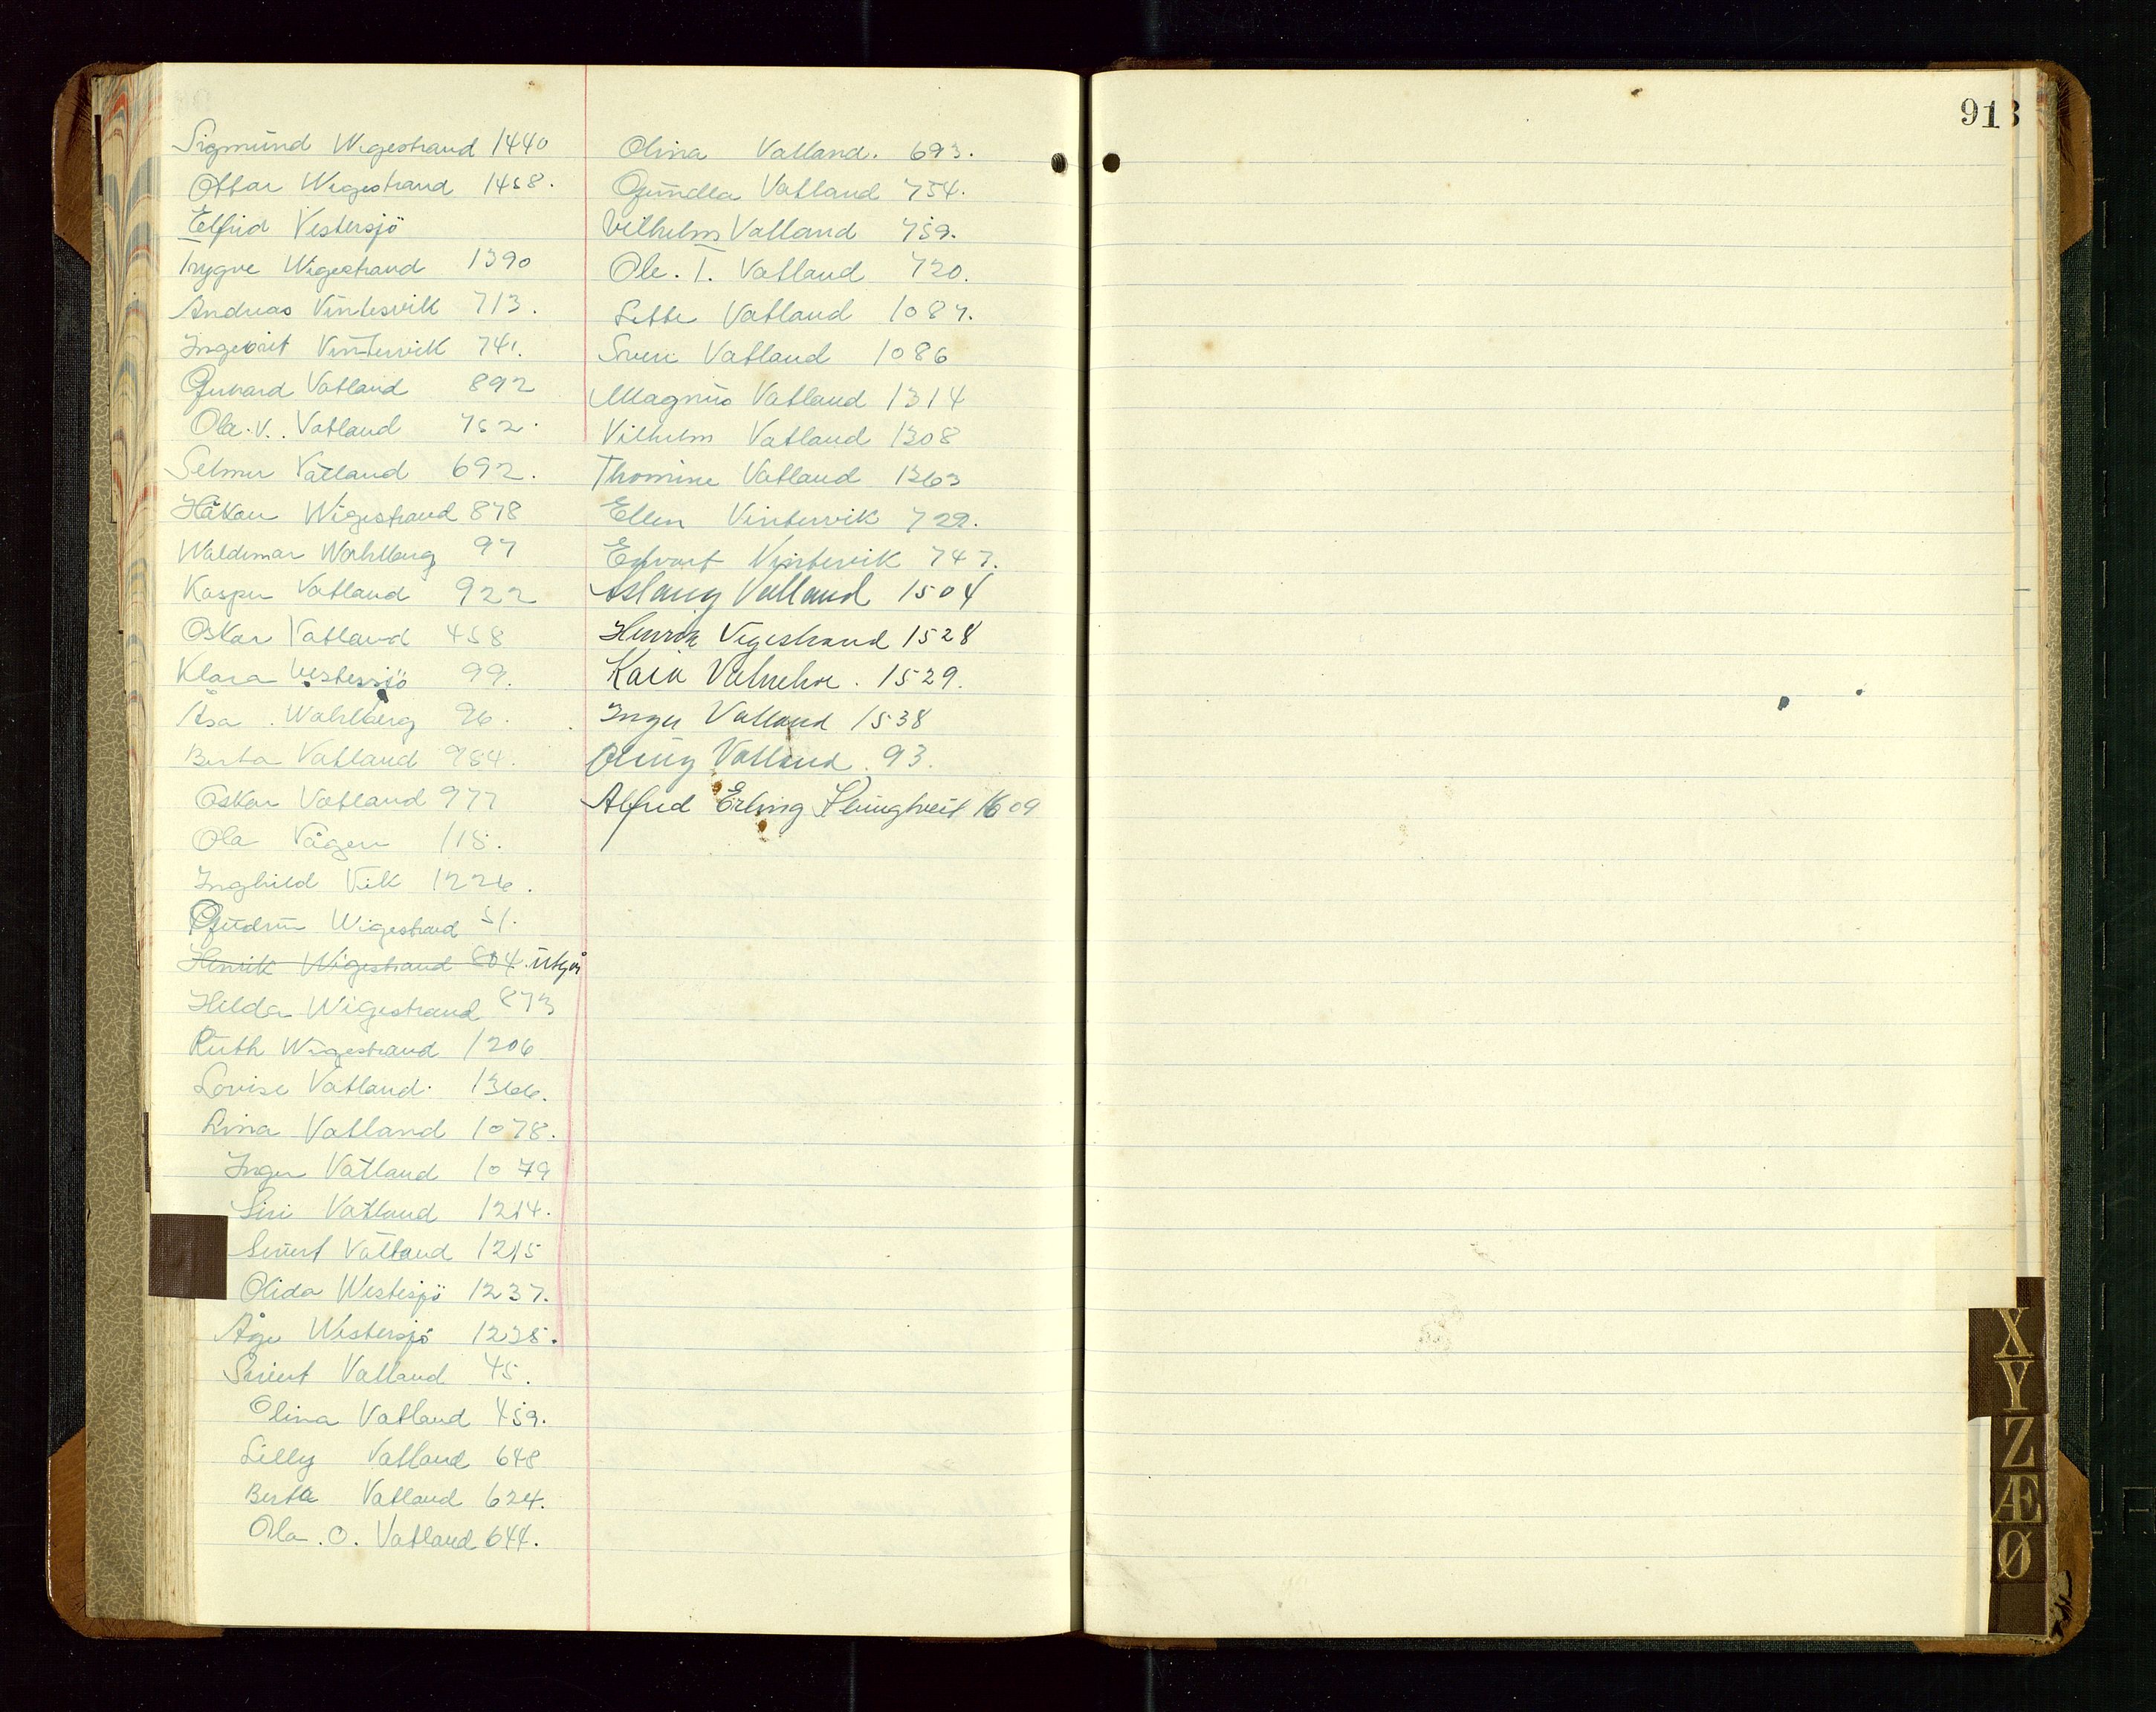 Sigmund Wigestrand 1440
Ottar Wigestrand 1458.
Elfrid Vestersjö
Trygve Wigestrand 1390
Andreas Vintervik 713.
Vintervik 741.
Vatland 892
Ola. V. Vatland 752.
Selmer Vatland 692.
Håkon Wigestrand 878
Waldemar Wahlberg 97
Kasper Vatland 922
Oskar Vatland 458
Klara Vestersjö 99.
Åsa Wahlberg 96.
Berta Vatland 984.
Oskar Vatland 977
Ola Vågen 115.
Inghild Vik 1226.
Gudrun Wigestrand 51.
Henrik Wigestrand 804. Utgår
Helda Wigestrand 873
Ruth Wigestrand 1206
Lovise Vatland. 1366.
Lina Vatland 1078.
Inger Vatland 1079
Siri Vatland 1214.
Sivert Vatland 1215
Olida Westersjö 1237.
Åge Westersjö 1238.
Sivert Vatland 45.
Olina Vatland 459.
Lilly Vatland 648
Berta Vatland 624.
Ola. O. Vatland 644.
Olina Vatland. 693.
Gundla Vatland 754.
Vilhelm Vatland 759.
Ole. T. Vatland 720.
Vatland 1087.
Vatland 1086
Magnus Vatland 1314
Vilhelm Vatland 1308
Thomine Vatland 1363
Ellen Vintervik 722.
Edvart Vintervik 747.
Aslaug Vatland 1504
Henrik Vigestrand 1528
Kaia 1529.
Inger Vatland 1538
Vatland. 93.
Alfred Erling 1609
913
X
Y
Z
Æ
Ø